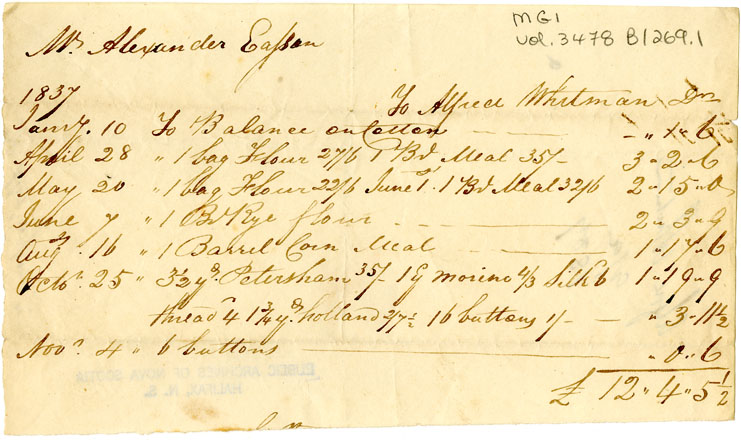 MG1
vol. 3478 B1269.1
Mr Alexander Easson
1837
To Alfred Whitman Dr
Jany. 10 To Balance on Cotton — " — " 6
April 28 " 1 bag Flour 27/6 1 Bd Meal 35/- 3 " 2 " 6
May 20 " 1 bag Flour 22/6 June 1. 1 Bd Meal 32/6 2 " 15 " 0
June 7 " 1 Bd Rye flour 2 " 3 " 9
Augt 16 " 1 Barrel Corn Meal 1 " 17 " 6
Octor. 25 " 3½ yds Petersham 35/- 1 y moreno 4/3 Silk 6 1 " 19 " 9
thread 4 1¾ yds holland 2/7½ 16 buttons 1/- — " 3 " 11½
Novr. 4 " 6 buttons " 0 " 6
£ 12 " 4 " 5½
PUBLIC ARCHIVES OF NOVA SCOTIA
HALIFAX, N. S.